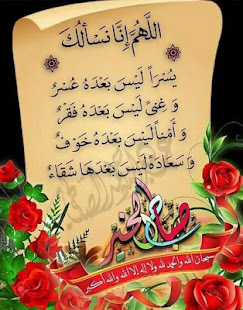 اللَّهُمَّ إِنَّا نَسْأَلُكَ
يُسْراً لَيْسَ بَعْدَهُ عُسْرٌ
وَ غِنًى لَيْسَ بَعْدَهُ فَقْرٌ
وَ أَمْناً لَيْسَ بَعْدَهُ خَوْفٌ
وَ سَعَادَةً لَيْسَ بَعْدَهَا شَقَاءٌ
صباح الخير
سبحان الله والحمد لله ولا إله إلا الله والله أكبر